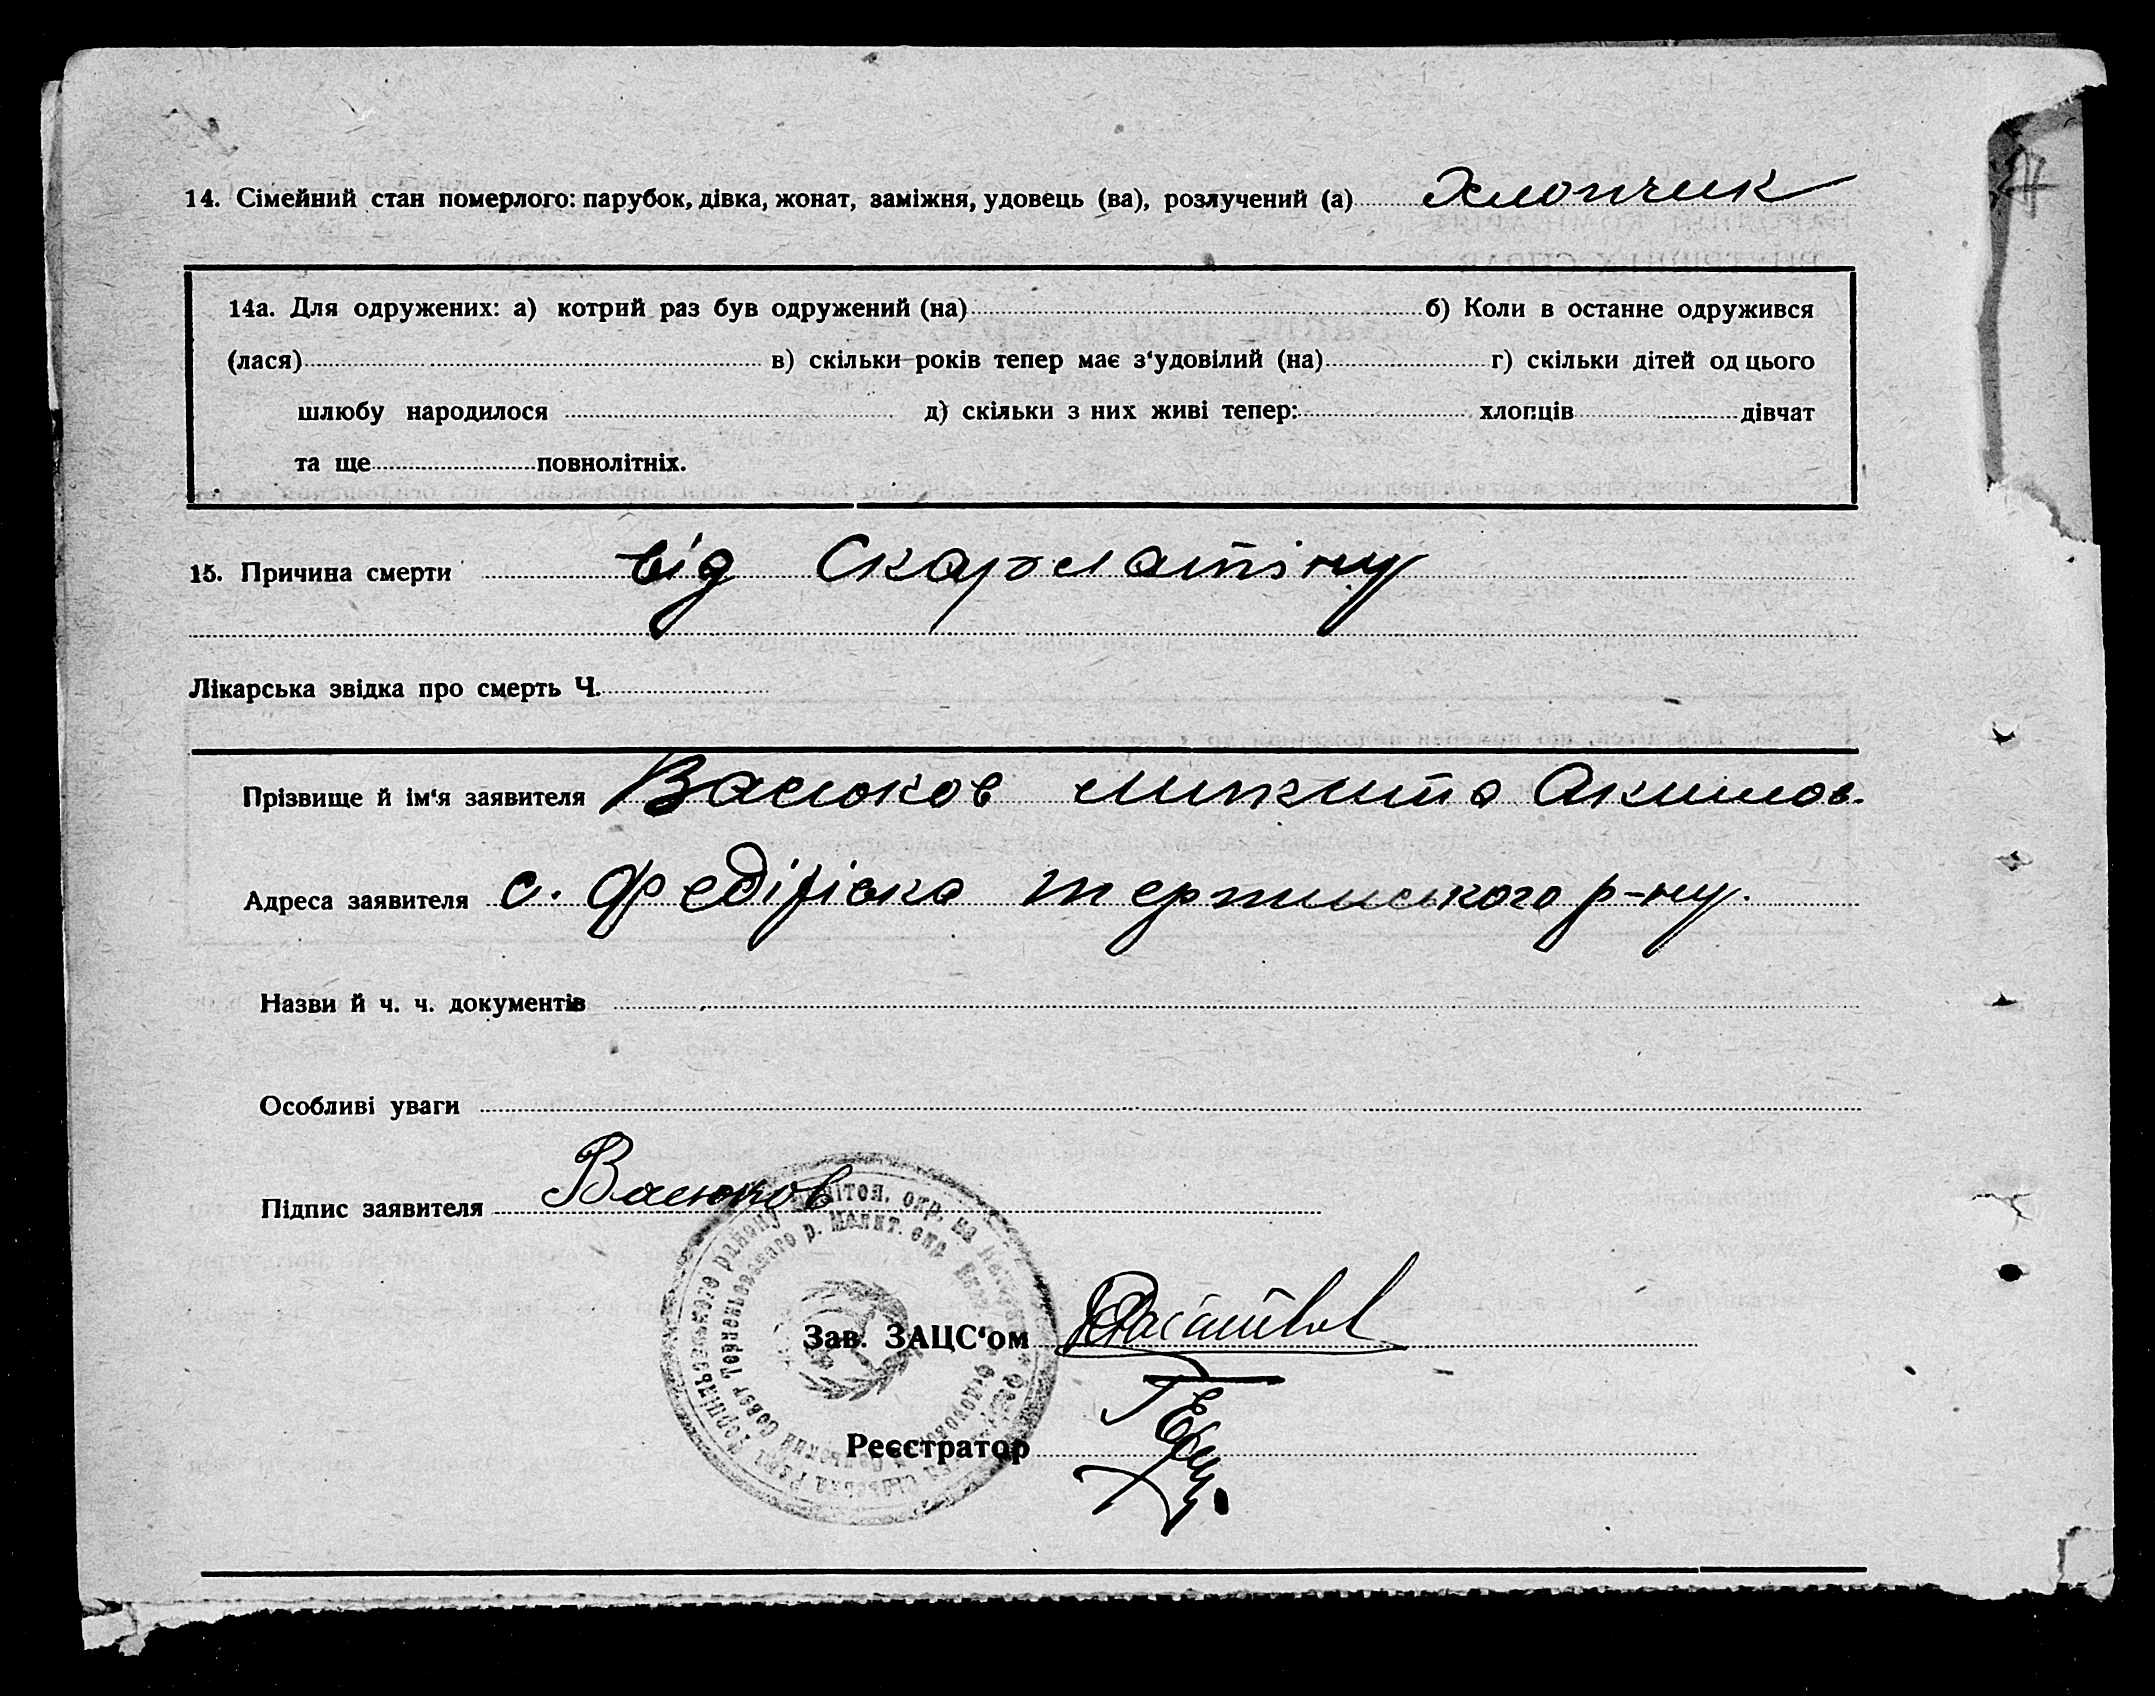 14. Сімейний стан померлого: парубок, дівка, жонат, заміжня, удовець (ва), розлучений (а) Хлопчик
14а. Для одружених: а) котрий раз був одружений (на) б) Коли в останнє одружився
(лася) в) скільки років тепер має з'удовілий (на) г) скільки дітей од цього
шлюбу народилося д) скільки з них живі тепер: хлопців дівчат
та ще повнолітніх.
15. Причина смерти від Скарлатіну
Лікарська звідка про смерть Ч.
Прізвище й ім'я заявителя Васюков Микита Акимов.
Адреса заявителя с. Федірівка терпинського р-ну.
Назви й ч. ч. документів
Особливі уваги
Підпис заявителя Васюков
Зав. ЗАЦС'ом
Реєстратор